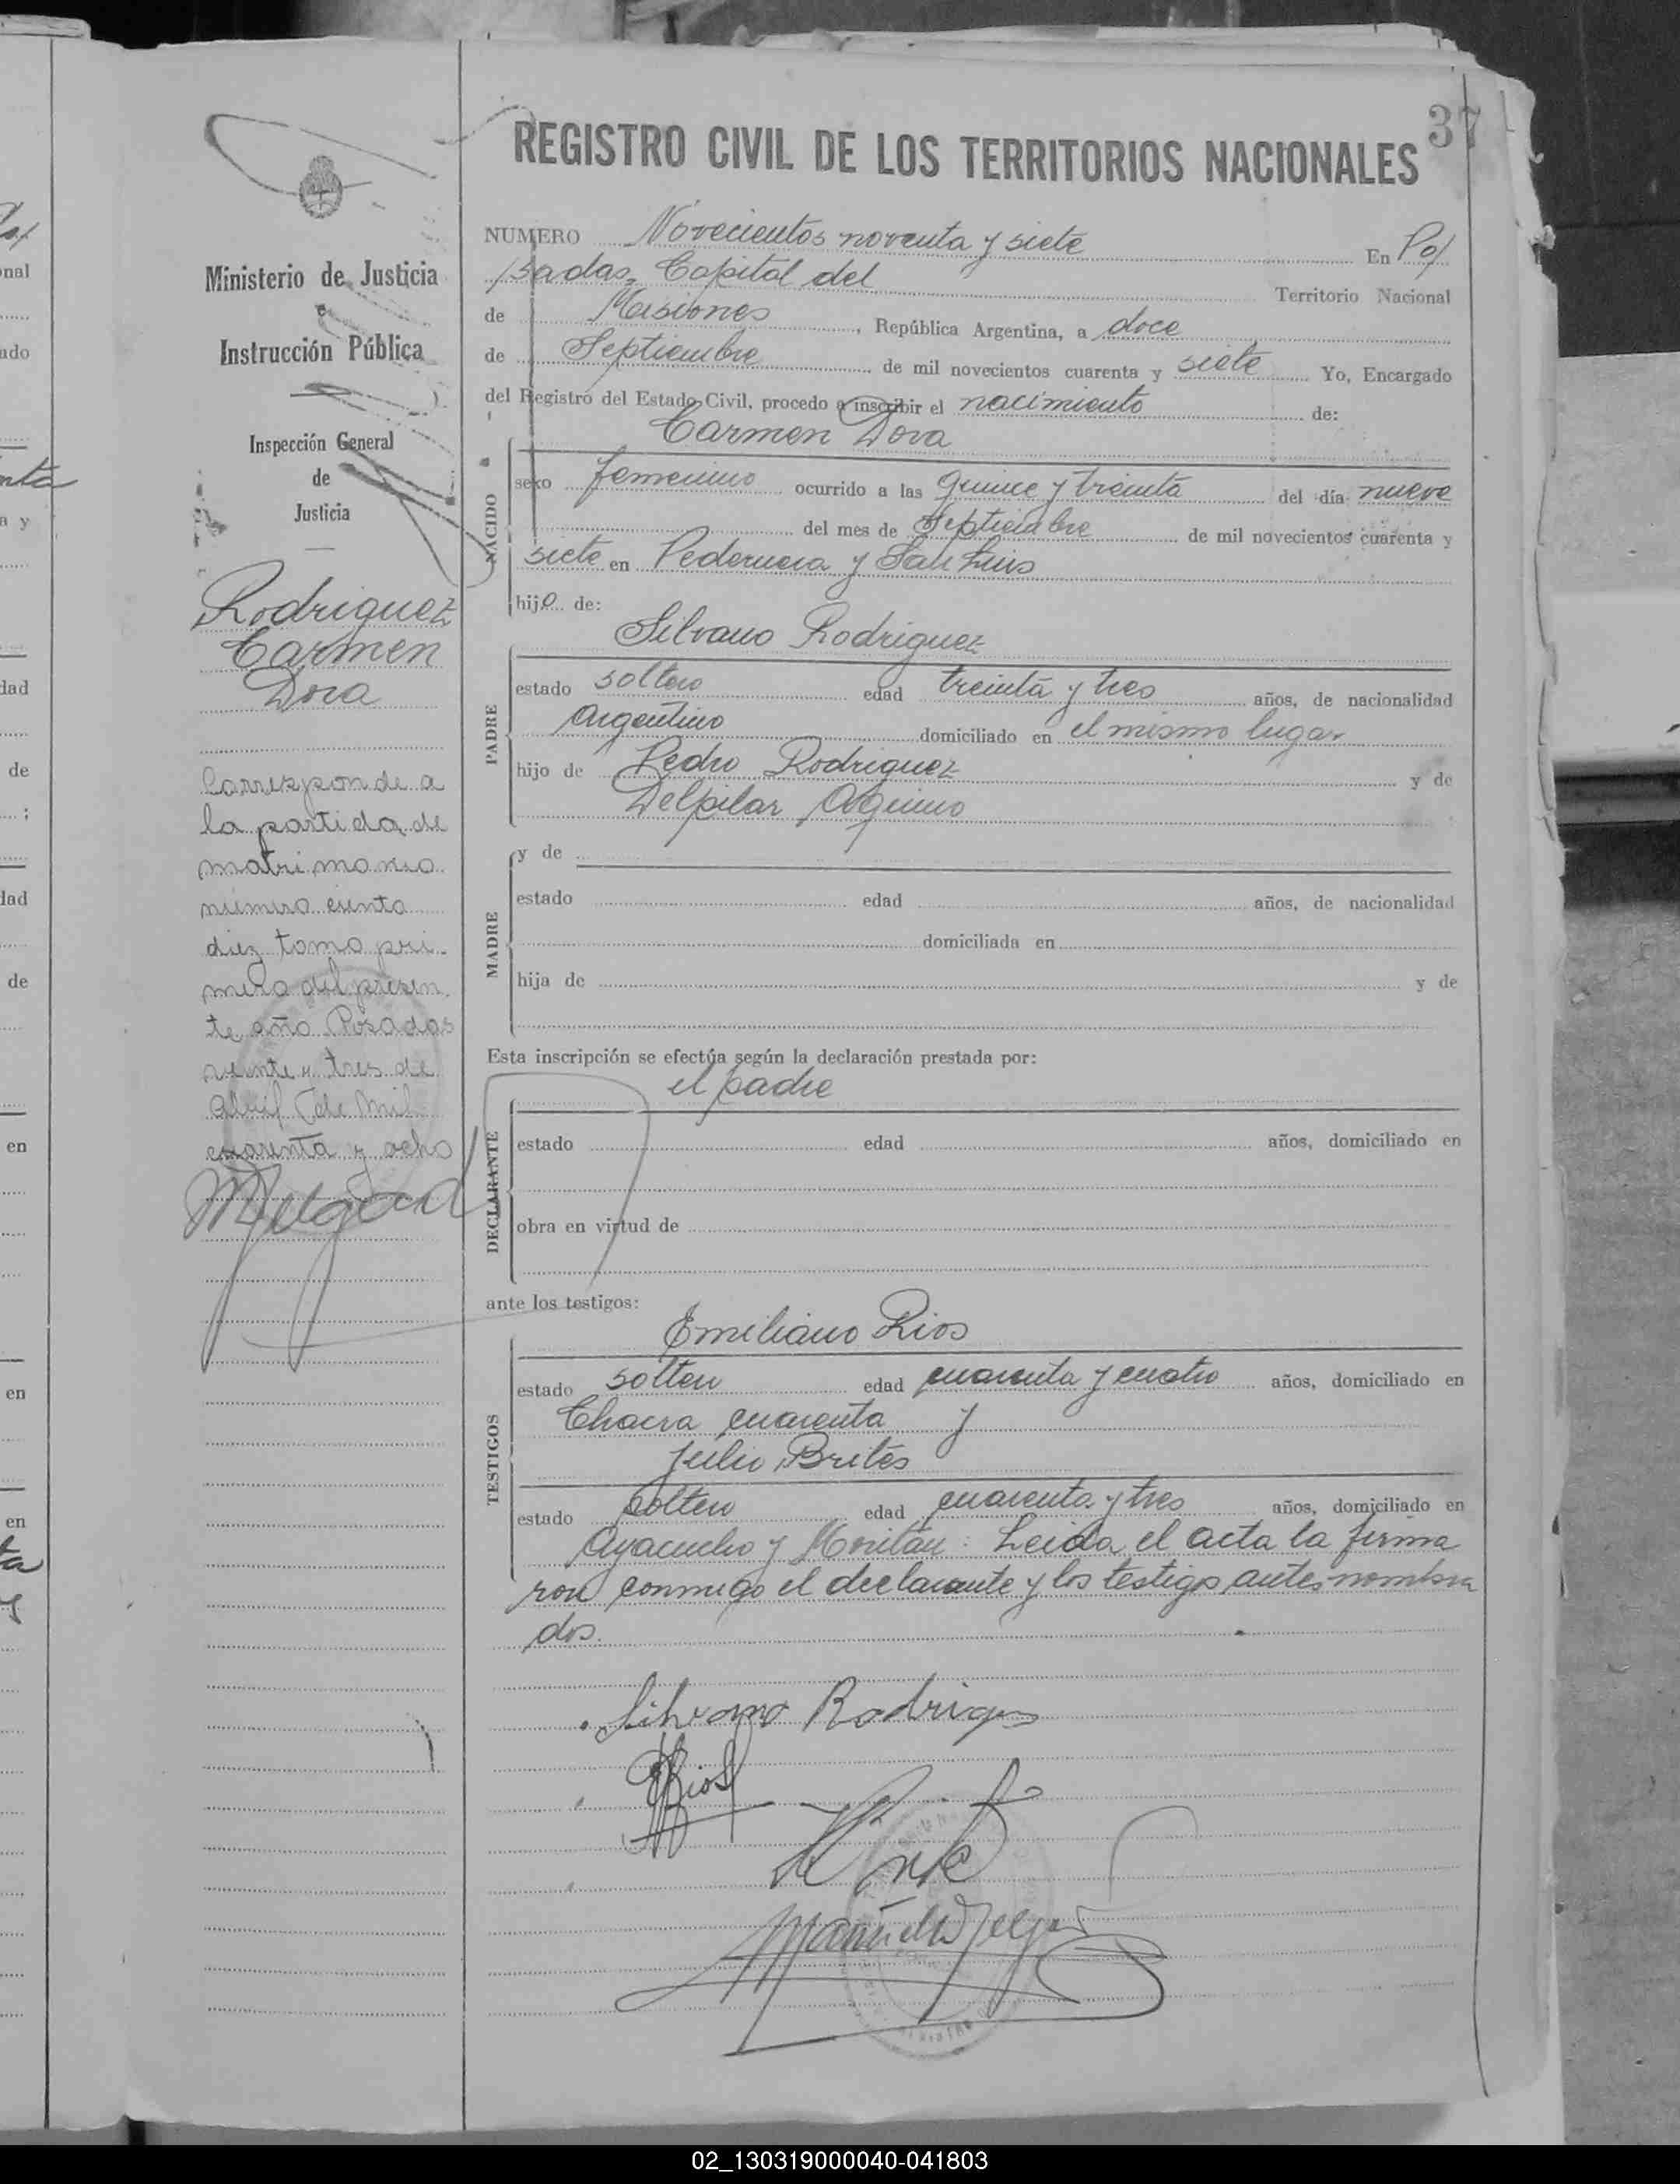 37
REGISTRO CIVIL DE LOS TERRITORIOS NACIONALES
Ministerio de Justicia
e
Instrucción Pública
Inspección General
de
Justicia
Rodriguez
Carmen
Dora
Corresponde a
la partida de
matrimonio
número ciento
diez tomo pri-
mero del presen-
te año Posadas
veinte y tres de
abril de mil
cuarenta y ocho
NUMERO Novecientos noventa y siete En Po/
/sadas, Capital del Territorio Nacional
de Misiones, República Argentina, a doce
de Septiembre de mil novecientos cuarenta y siete Yo, Encargado
del Registro del Estado Civil, procedo a inscribir el nacimiento de:
Carmen Dora
NACIDO
sexo femenino ocurrido a las quince y treinta del día nueve
del mes de Septiembre de mil novecientos cuarenta y
siete en Pedernera y San Luis
hijo de:
Silvano Rodriguez
PADRE
estado soltero edad treinta y tres años, de nacionalidad
Argentino domiciliado en el mismo lugar
hijo de Pedro Rodriguez y de
Delpilar Aquino
MADRE
y de
estado edad años, de nacionalidad
domiciliada en
hija de y de
Esta inscripción se efectúa según la declaración prestada por:
el padre
DECLARANTE
estado edad años, domiciliado en
obra en virtud de
ante los testigos:
Emiliano Rios
TESTIGOS
estado soltero edad cuarenta y cuatro años, domiciliado en
Chacra cuarenta y
Julio Brites
estado soltero edad cuarenta y tres años, domiciliado en
Ayacucho y Moritán: Leida el acta la firma
ron conmigo el declarante y los testigos antes nombra
dos.
Silvano Rodrigues
ERios
02_130319000040-041803